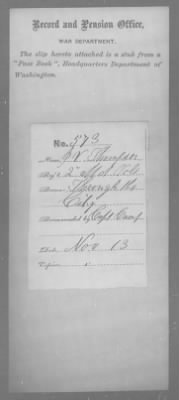 Record and Pension Office,
WAR DEPARTMENT.
The slip hereto attached is a stub from a
"Pass Book", Headquarters Department of
Washington.
No. 573
Name Thompson
Through the
City
Recommended by Capt Camp
Date Nov 13